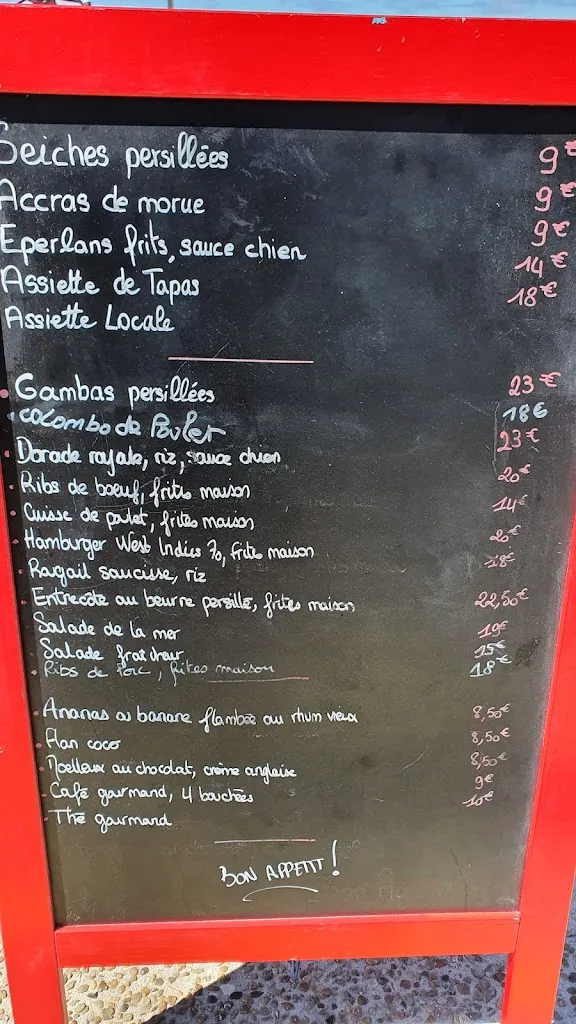 Seiches persillées 9€
Accras de morue 9€
Eperlans frits, sauce chien 9€
Assiette de Tapas 14€
Assiette Locale 18€
Gambas persillées 23€
colombo de Poulet 18€
Dorade royale, riz, sauce chien 23€
Ribs de boeuf, frites maison 20€
Cuisse de poulet, frites maison 14€
Hamburger West Indies 70, frites maison 20€
Rougail saucisse, riz 18€
Entrecôte au beurre persillé, frites maison 22,50€
Salade de la mer 19€
Salade fraicheur 15€
Ribs de Porc, frites maison 18€
Ananas ou banane flambée au rhum vieux 8,50€
Flan coco 8,50€
Moelleux au chocolat, crème anglaise 8,50€
Café gourmand, 4 bouchées 9€
Thé gourmand 10€
BON APPETIT!